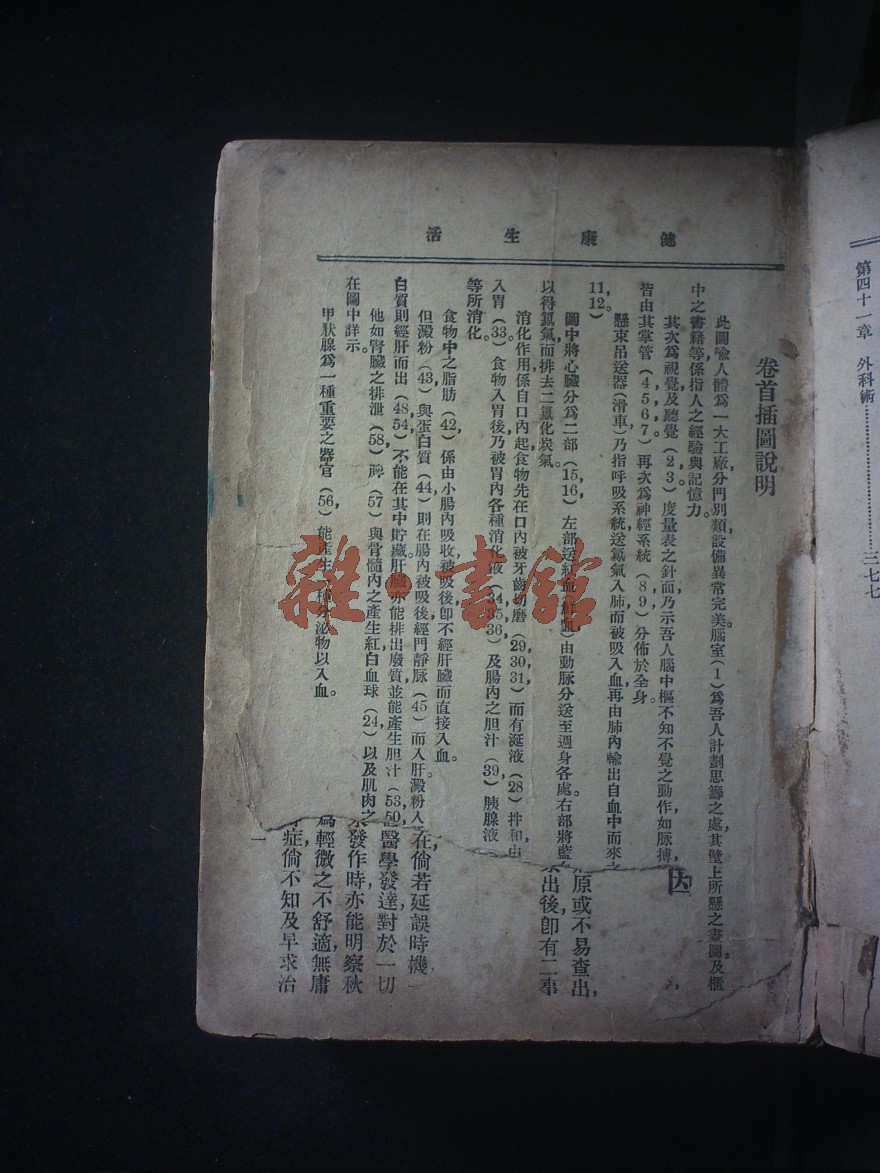 健康生活
卷首插圖說明
此圖喻人體爲一大工廠,分門別類,設備異常完美。腦室(1)爲吾人計劃思籌之處,其壁上所懸之畫圖及櫃
中之書籍等,係指人之經驗與記憶力。
其次爲視覺及聽覺(2,3)度量表之針面,乃示吾人腦中樞不知不覺之動作,如脉搏,
皆由其掌管(4,5,6,7)再次爲神經系統(8,9)分佈於全身。
懸束吊送器(滑車)乃指呼吸系統,送氯氣入肺,而被吸入血,再由肺內輸出自血中而來之
11,12。)
圖中將心臟分爲二部(15,16)左部送紅血(鮮血)由動脉分送至週身各處。右部將藍
以得氯氣,而排去二氯化炭氣。
消化作用,係自口內起,食物先在口內,被牙齒切磨(29,30,31)而有涎液(28)拌和,由
入胃(33)食物入胃後,乃被胃內各種消化液(34,35,36)及腸內之胆汁(39)胰腺液
等所消化。
食物中之脂肪(42)係由小腸內吸收,被吸後卽不經肝臟而直接入血。
但澱粉(43)與蛋白質(44)則在腸內被吸後,經門靜脉(45)而入肝。澱粉入
白質則經肝而出(48,54)不能在其中貯藏。肝臟亦能排出廢質,並能產生胆汁(53,50
他如腎臟之排泄(58)脾(57)與骨髓內之產生紅白血球(24)以及肌肉之
在圖中詳示。
甲狀腺爲一種重要之器官(56)能產生一種分泌物以入血。
因
原或不易查出,
出後,卽有二事
在,倘若延誤時機
醫學發達,對於一切
發作時,亦能明察秋
爲輕微之不舒適,無庸
症,倘不知及早求治
一
第四十一章 外科術……三七七
雜·書館